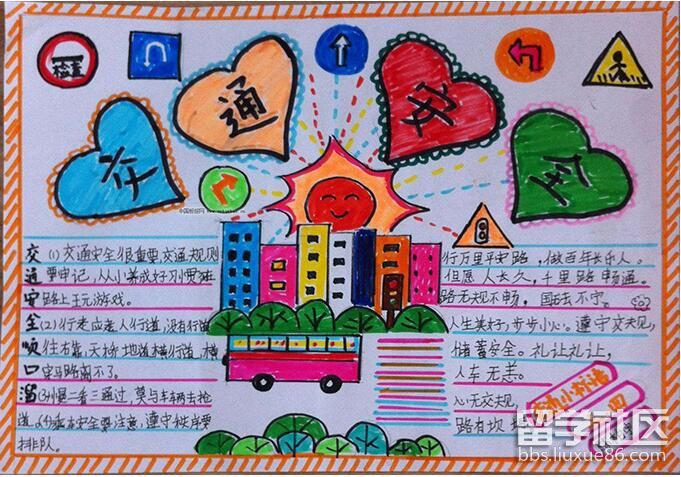 检查
交 通 安 全
交 (1)交通安全很重要,交通规则
通 要牢记,从小养成好习惯,
安 路上玩游戏。
全 (2)行走应走人行道,没有行道
顺 往右靠,天桥地道横行道,横
口 穿马路离不了。
溜 (3)慢一看三通过,莫与车辆去抢
道。(4)乘车安全要注意,遵守秩序要
排队。
行万里平安路,做百年长乐人。
但愿人长久,千里路畅通。
路无规不畅,国无法不宁。
人生美好,步步小心。遵守交规,
储蓄安全。礼让礼让,
人车无恙。
心无交规,
路有坎
留学社区
bbs.liuxue86.com